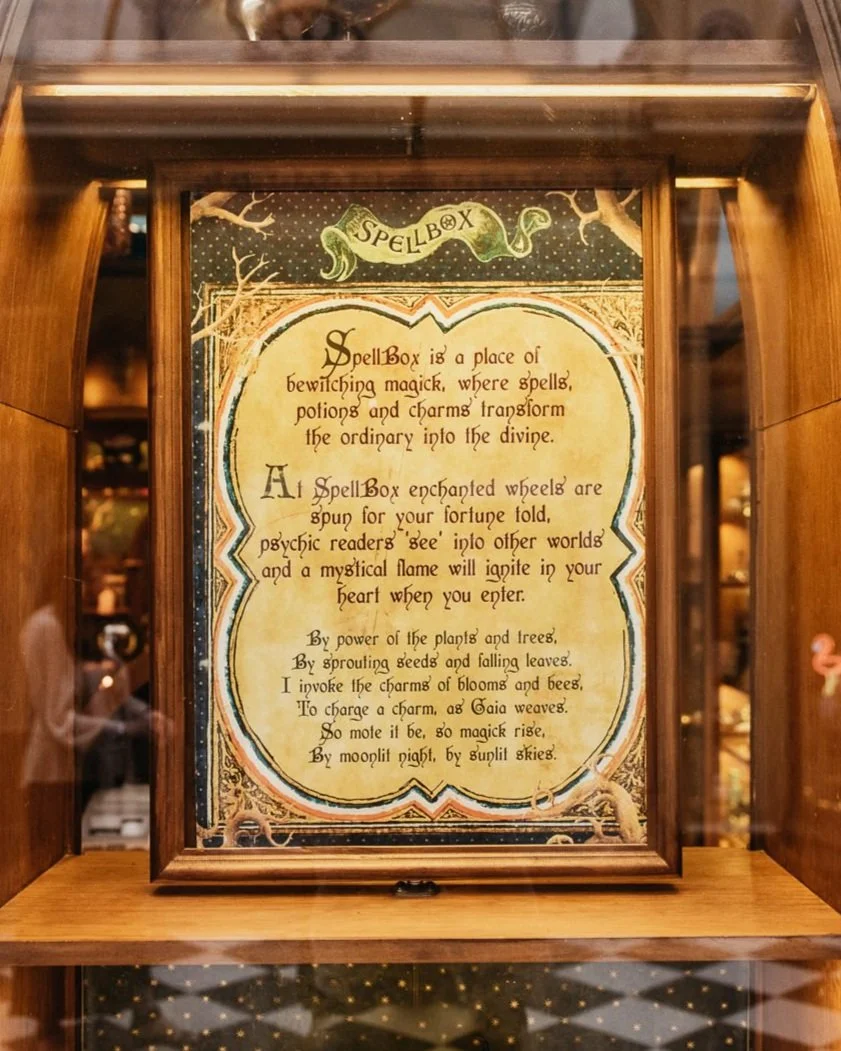 SPELLBOX
SpellBox is a place of
bewitching magick, where spells,
potions and charms transform
the ordinary into the divine.
At SpellBox enchanted wheels are
spun for your fortune told,
psychic readers 'see' into other worlds
and a mystical flame will ignite in your
heart when you enter.
By power of the plants and trees,
By sprouting seeds and falling leaves.
I invoke the charms of blooms and bees,
To charge a charm, as Gaia weaves.
So mote it be, so magick rise,
By moonlit night, by sunlit skies.